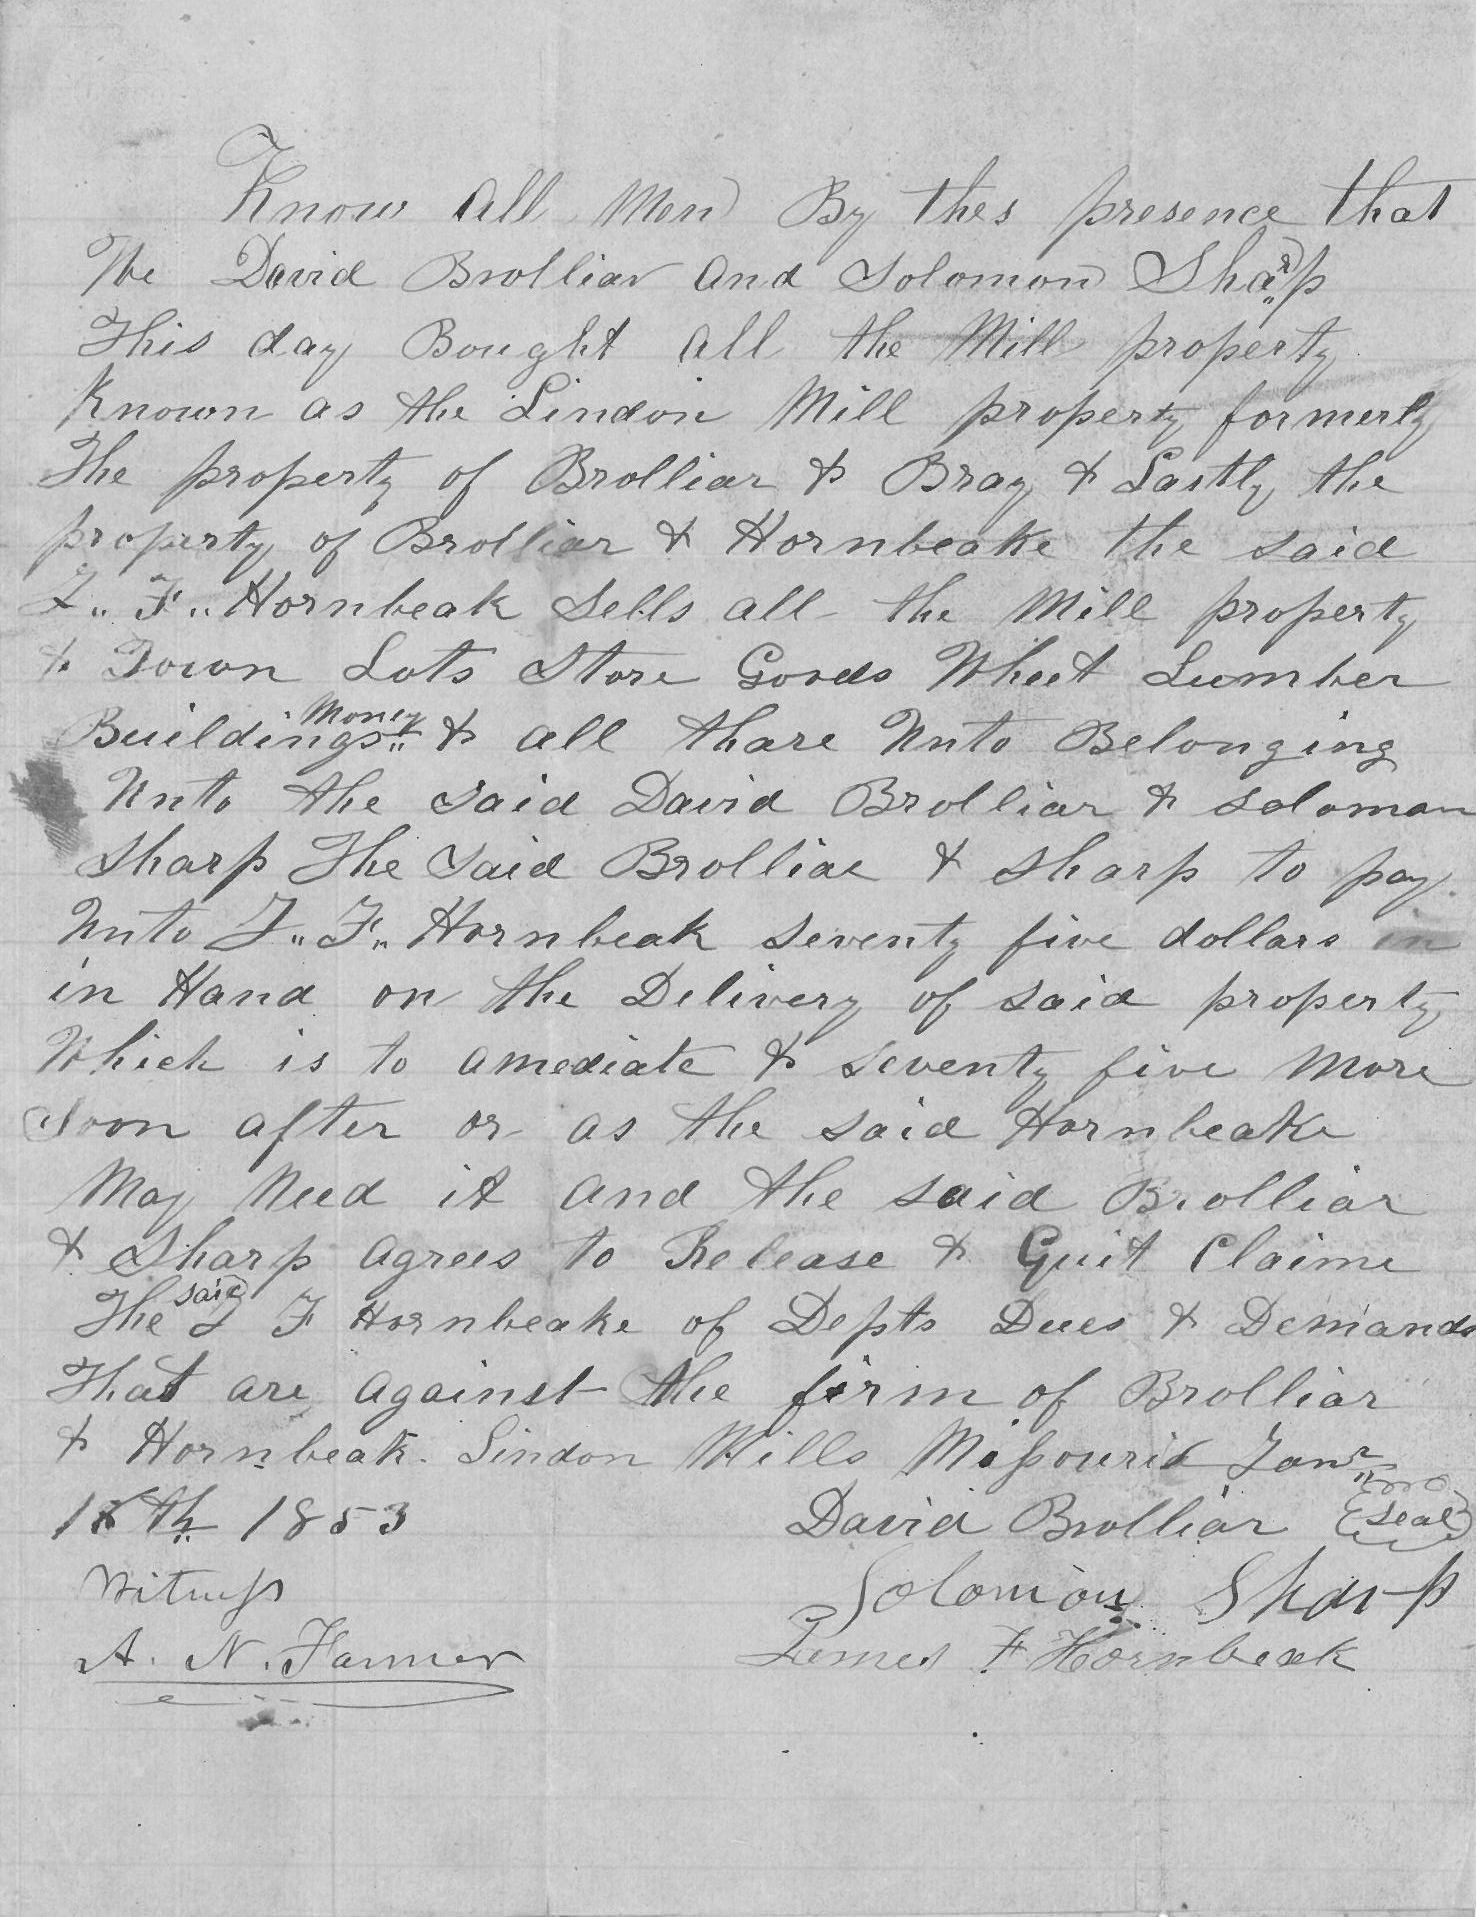 Know All Men By thes presence that
We David Brolliar and Solomon Sharp
This day Bought all the Mill property
Known as the Lindon Mill property formerly
The property of Brolliar & Bray & Lastly the
property of Brolliar & Hornbeake the said
J.. F.. Hornbeak Sells all the Mill property
& Town Lots Store Goods Wheet Lumber
Buildings Money & all thare Unto Belonging
Unto the said David Brolliar & Soloman
Sharp The Said Brolliar & Sharp to pay
Unto J.. F.. Hornbeak Seventy five dollars in
in Hand on the Delivery of said property
Which is to amediate & Seventy five More
Soon after or as the said Hornbeake
May Need it and the said Brolliar
& Sharp agrees to Release & Quit Claime
The said J F Hornbeake of Depts Dues & Demands
That are against the firm of Brolliar
& Hornbeak. Lindon Mills Missouri Janr
th 1853 David Brolliar Seal
Witness Solomon Sharp
A. N. Farmer James F Hornbeak